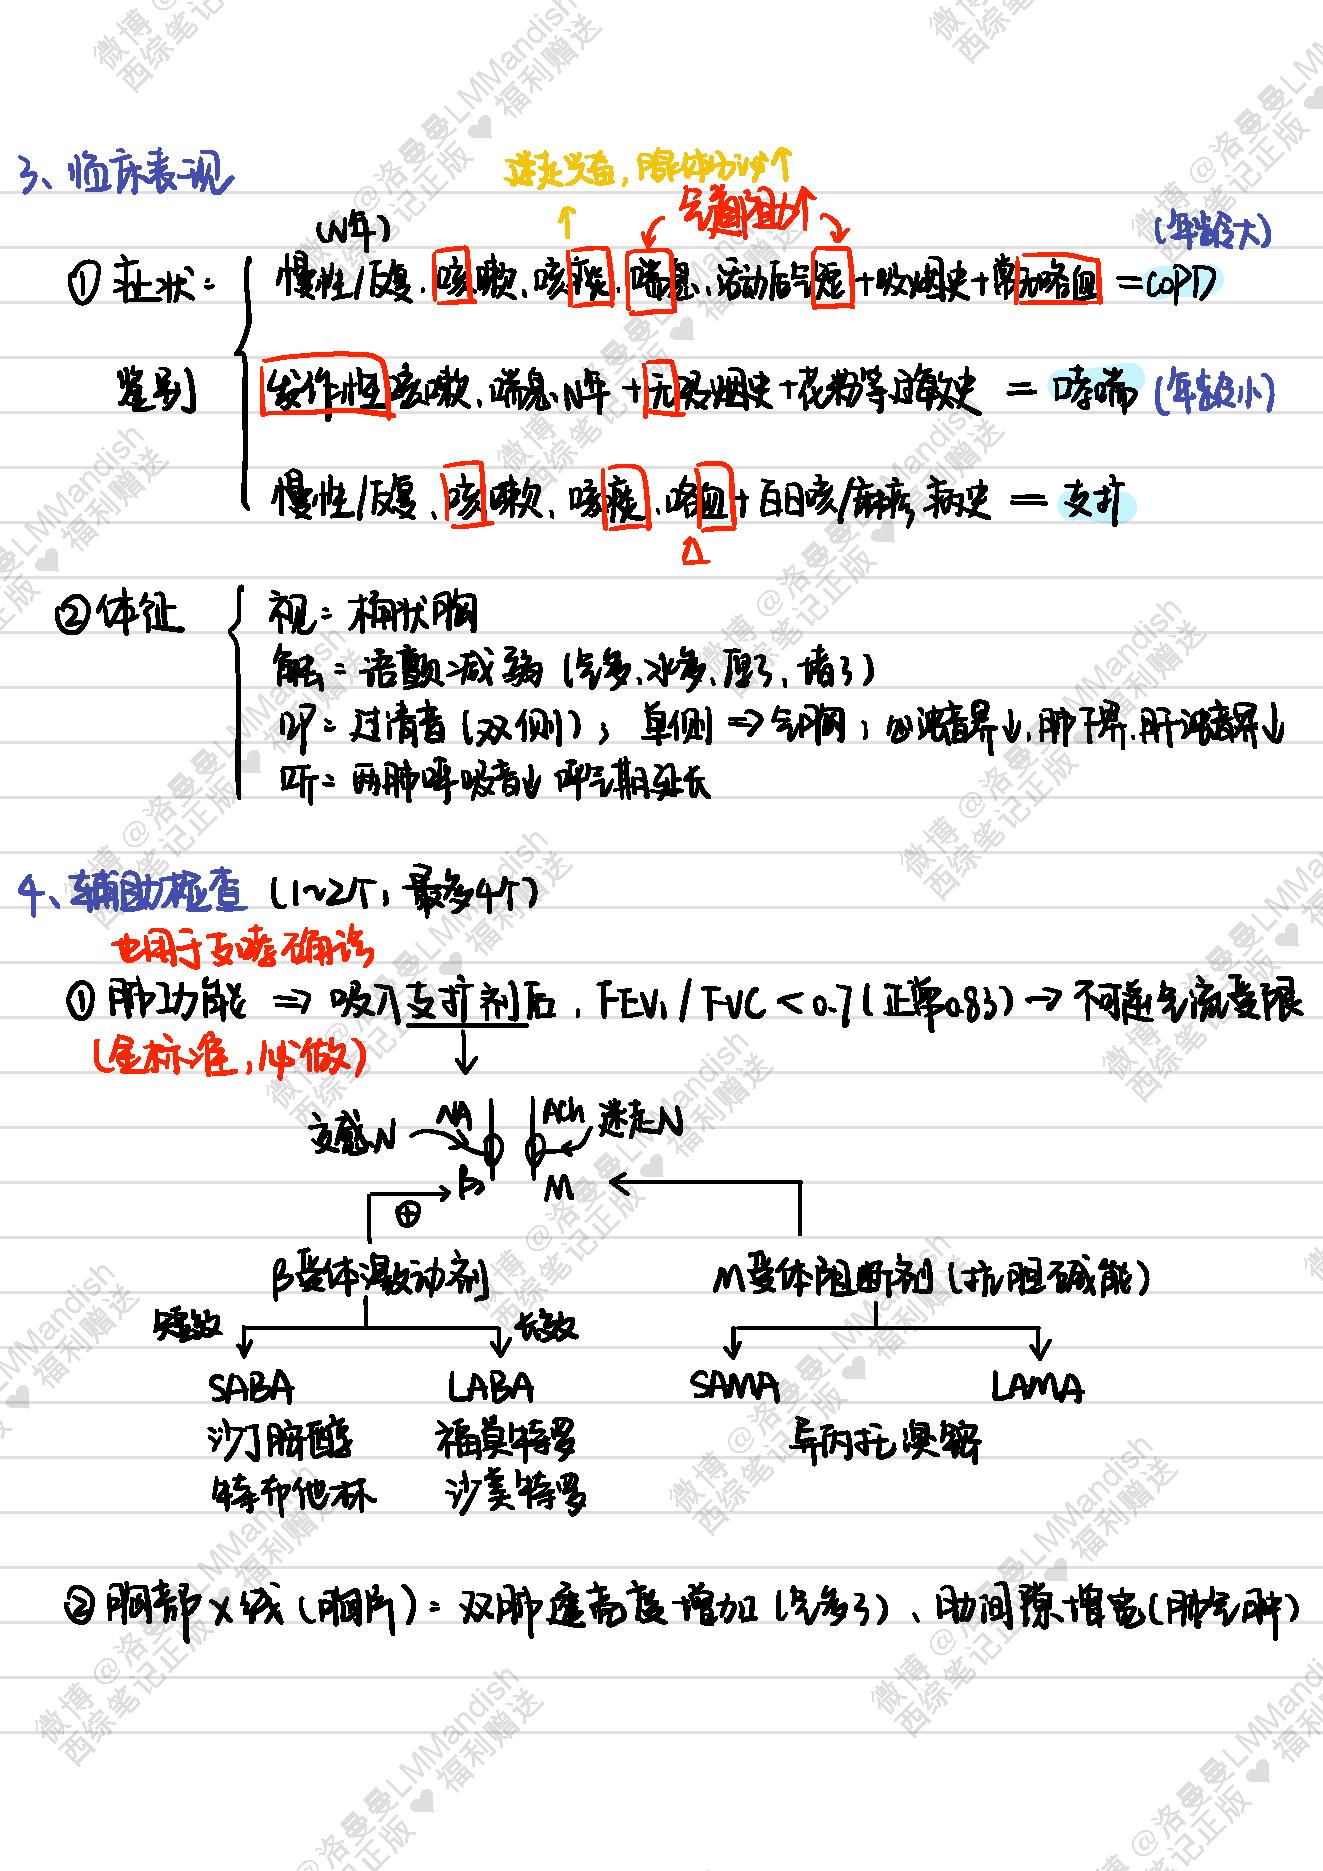 3、临床表现
迷走兴奋，腺体分泌↑
气道阻力↑
(N年)
(年龄大)
① 症状：慢性/反复、咳嗽、咳痰、喘息、活动后气短+吸烟史+常无咯血 = COPD
鉴别 发作性咳嗽、喘息N年+无吸烟史+花粉等过敏史 = 哮喘 (年龄小)
慢性/反复、咳嗽、咳痰、咯血+百日咳/麻疹病史 = 支扩
② 体征 视：桶状胸
触：语颤减弱(气多、水多、厚了、堵了)
叩：过清音(双侧)；单侧⇒气胸；心浊音界↓，肺下界、肝浊音界↓
听：两肺呼吸音↓ 呼气期延长
4、辅助检查 (1~2个，最多4个)
也用于支哮确诊
① 肺功能 ⇒ 吸入支扩剂后，FEV₁/FVC<0.7(正常0.83)→不可逆气流受限
(金标准，必做)
交感N NA ACh 迷走N
β₂ M
⊕
β受体激动剂 M受体阻断剂(抗胆碱能)
短效 长效
SABA LABA SAMA LAMA
沙丁胺醇 福莫特罗 异丙托溴铵
特布他林 沙美特罗
② 胸部X线(胸片)：双肺透亮度增加(气多了)、肋间隙增宽(肺气肿)
微博@洛曼曼LMMandish
西综笔记正版♥福利赠送